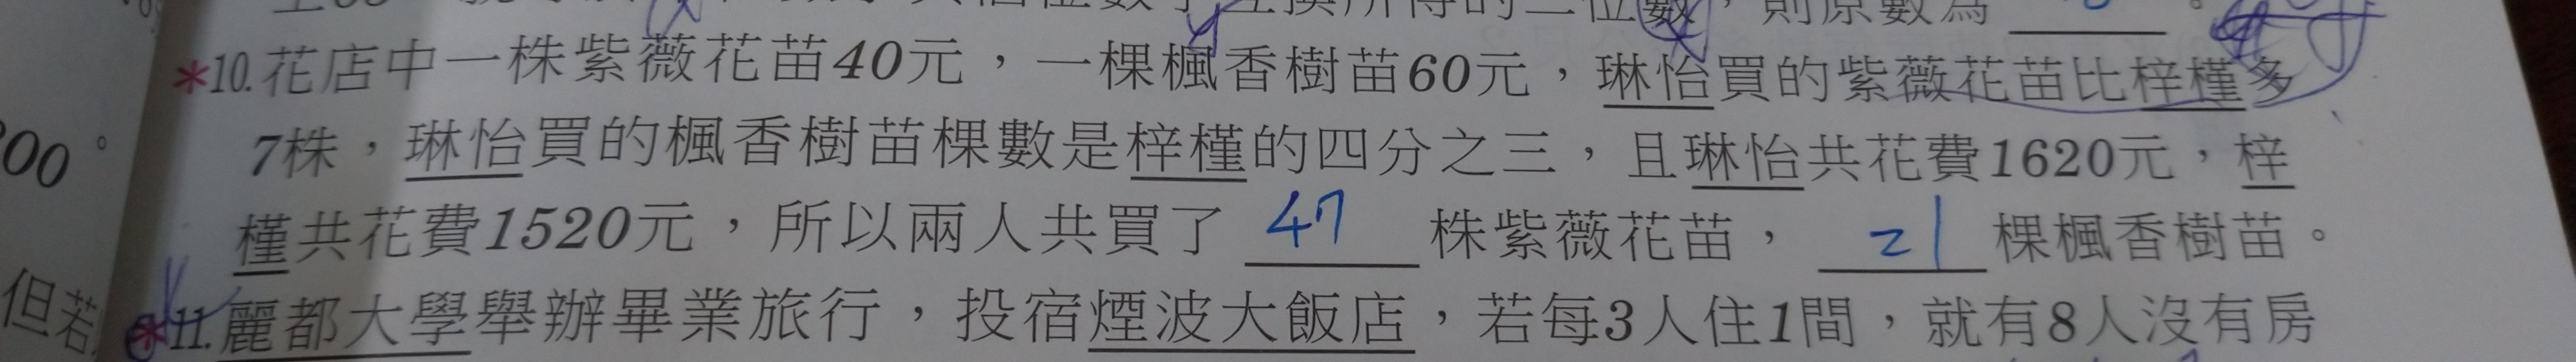 互換所得的二位數，則原數為
*10.花店中一株紫薇花苗40元，一棵楓香樹苗60元，琳怡買的紫薇花苗比梓槿多
00。 7株，琳怡買的楓香樹苗棵數是梓槿的四分之三，且琳怡共花費1620元，梓
槿共花費1520元，所以兩人共買了 47 株紫薇花苗， 21 棵楓香樹苗。
但若 *11.麗都大學舉辦畢業旅行，投宿煙波大飯店，若每3人住1間，就有8人沒有房